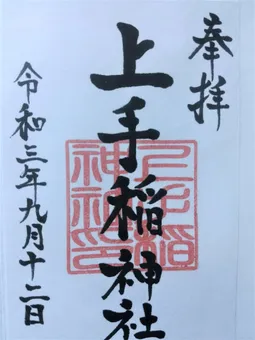 奉拝
上手稲神社
令和三年九月十二日
上手稲
神社印